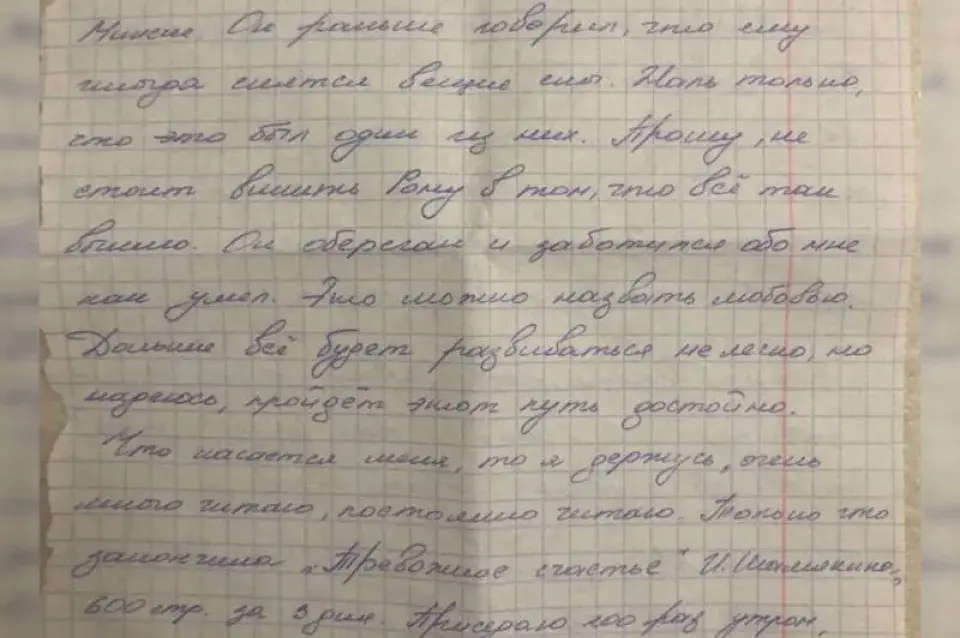 Минске. Он раньше говорил, что ему
иногда снятся вещие сны. Жаль только,
что это был один из них. Прошу, не
стоит винить Рому в том, что всё так
вышло. Он оберегал и заботился обо мне
как умел. Это можно назвать любовью.
Дальше всё будет развиваться нелегко, но
надеюсь, пройдёт этот путь достойно.
Что касается меня, то я держусь, очень
много читаю, постоянно читаю. Только что
закончила "Тревожное счастье" И. Шамякина,
600 стр. за 3 дня. Приседаю 100 раз утром,